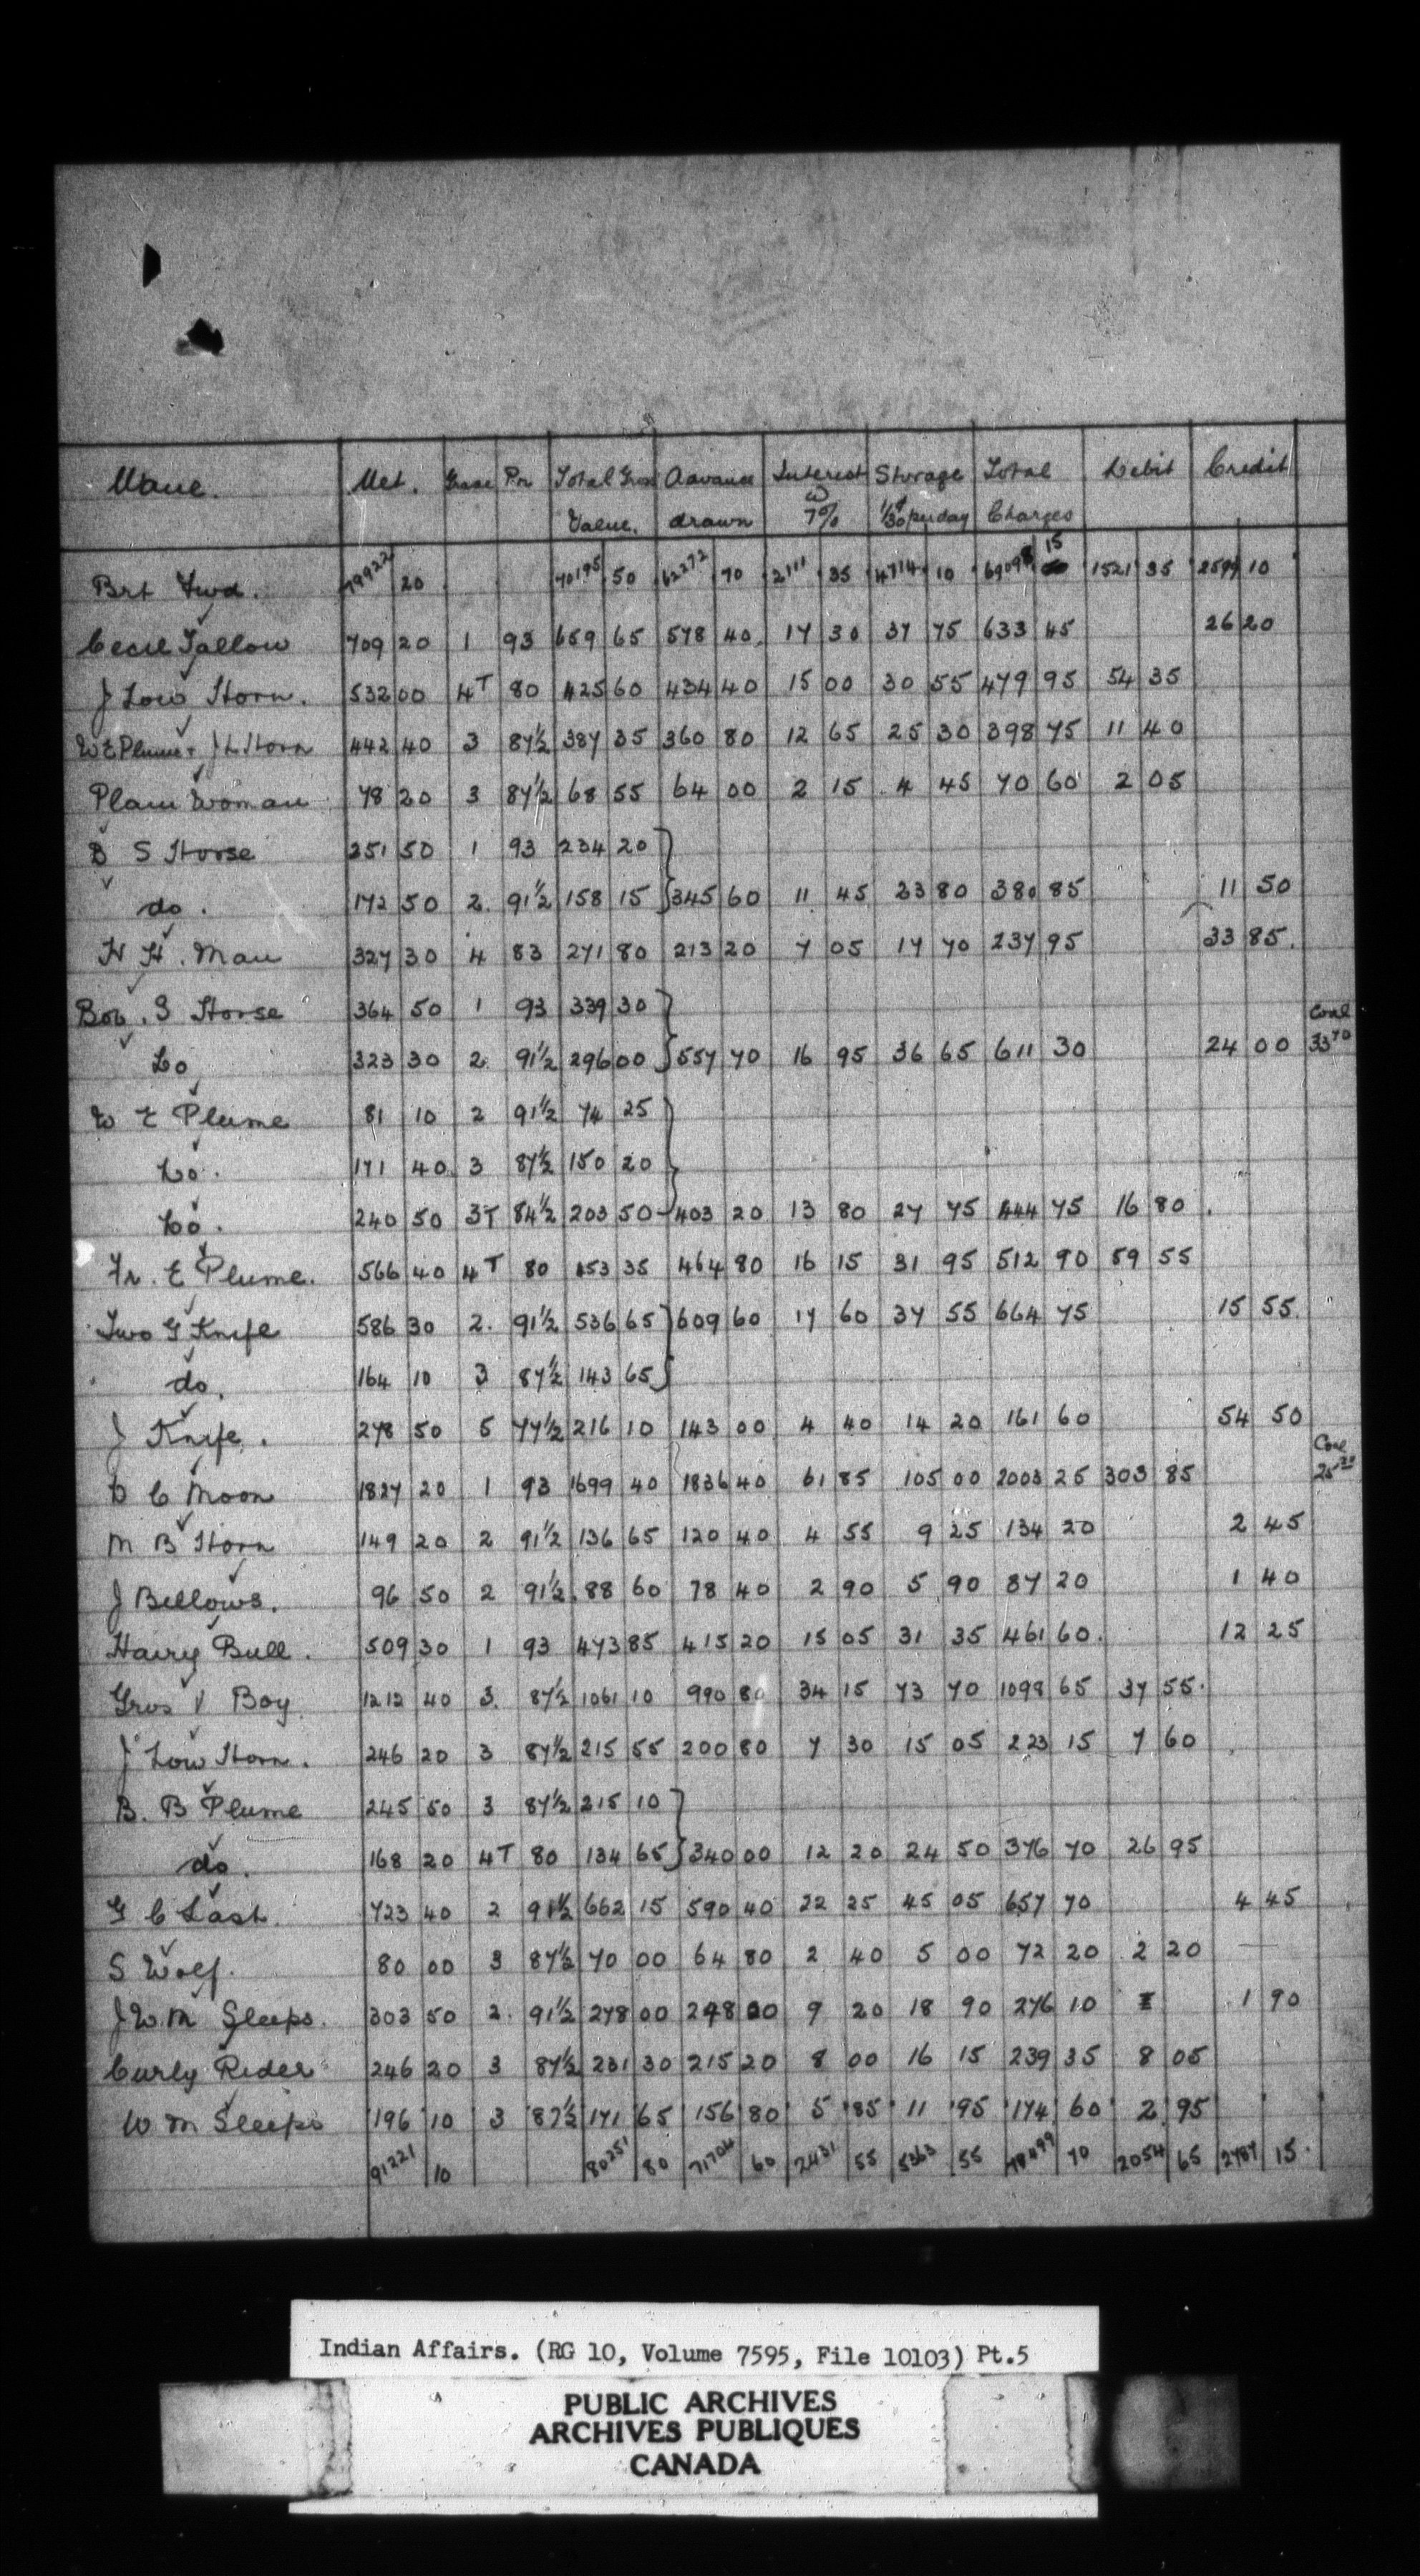 Name. Net. Grade Pr. Total Gross Advance Interest Storage Total Debit Credit
Value. drawn @ 7% 1/30¢ per day Charges
Brt Fwd. 79922 20 70195 50 62272 70 2111 35 4714 10 69098 15 1521 35 2599 10
Cecil Tallow 709 20 1 93 659 65 578 40 17 30 37 75 633 45 26 20
J Low Horn. 532 00 4T 80 425 60 434 40 15 00 30 55 479 95 54 35
W E Plume + J L Horn 442 40 3 87½ 387 35 360 80 12 65 25 30 398 75 11 40
Plain Woman 78 20 3 87½ 68 55 64 00 2 15 4 45 70 60 2 05
B S Horse 251 50 1 93 234 20
do. 172 50 2. 91½ 158 15 345 60 11 45 23 80 380 85 11 50
H H. Man 327 30 4 83 271 80 213 20 7 05 17 70 237 95 33 85.
Bob. S Horse 364 50 1 93 339 30
Do 323 30 2 91½ 296 00 557 70 16 95 36 65 611 30 24 00 Coal 33 70
W E Plume 81 10 2 91½ 74 25
Do. 171 40 3 87½ 150 20
Do. 240 50 3T 84½ 203 50 403 20 13 80 27 75 444 75 16 80
Fr. E Plume. 566 40 4T 80 453 35 464 80 16 15 31 95 512 90 59 55
Two G Knife 586 30 2. 91½ 536 65 609 60 17 60 37 55 664 75 15 55.
do. 164 10 3 87½ 143 65
J Knife. 278 50 5 77½ 216 10 143 00 4 40 14 20 161 60 54 50
D C Moon 1827 20 1 93 1699 40 1836 40 61 85 105 00 2003 25 303 85 Coal
M B Horn 149 20 2 91½ 136 65 120 40 4 55 9 25 134 20 2 45
J Bellows. 96 50 2 91½ 88 60 78 40 2 90 5 90 87 20 1 40
Hairy Bull. 509 30 1 93 473 85 415 20 15 05 31 35 461 60. 12 25
Gros V Boy. 1212 40 3. 87½ 1061 10 990 80 34 15 73 70 1098 65 37 55.
J Low Horn. 246 20 3 87½ 215 55 200 80 7 30 15 05 223 15 7 60
B. B Plume 245 50 3 87½ 215 10
do. 168 20 4T 80 134 65 340 00 12 20 24 50 376 70 26 95
G C Last. 723 40 2 91½ 662 15 590 40 22 25 45 05 657 70 4 45
S Wolf. 80 00 3 87½ 70 00 64 80 2 40 5 00 72 20 2 20
J W. M Sleeps. 303 50 2. 91½ 278 00 248 00 9 20 18 90 276 10 1 90
Curly Rider 246 20 3 87½ 231 30 215 20 8 00 16 15 239 35 8 05
W M Sleeps 196 10 3 87½ 171 65 156 80 5 85 11 95 174 60 2 95
91221 10 80251 80 71704 60 2431 55 5363 55 79499 70 2054 65 2787 15.
Indian Affairs. (RG 10, Volume 7595, File 10103) Pt.5
PUBLIC ARCHIVES
ARCHIVES PUBLIQUES
CANADA